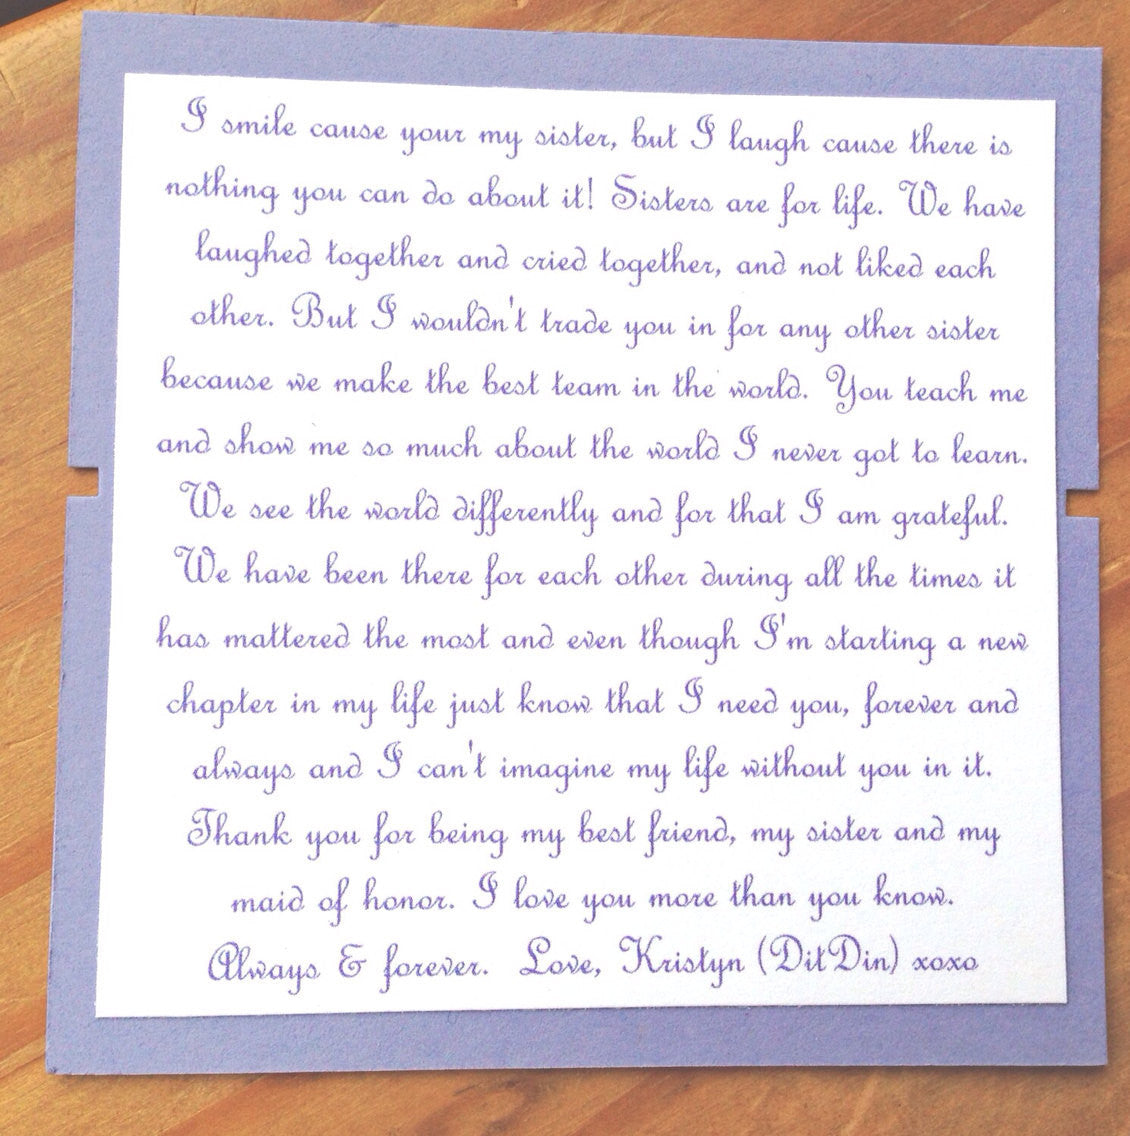 I smile cause your my sister, but I laugh cause there is
nothing you can do about it! Sisters are for life. We have
laughed together and cried together, and not liked each
other. But I wouldn't trade you in for any other sister
because we make the best team in the world. You teach me
and show me so much about the world I never got to learn.
We see the world differently and for that I am grateful.
We have been there for each other during all the times it
has mattered the most and even though I'm starting a new
chapter in my life just know that I need you, forever and
always and I can't imagine my life without you in it.
Thank you for being my best friend, my sister and my
maid of honor. I love you more than you know.
Always & forever. Love, Kristyn (DitDin) xoxo